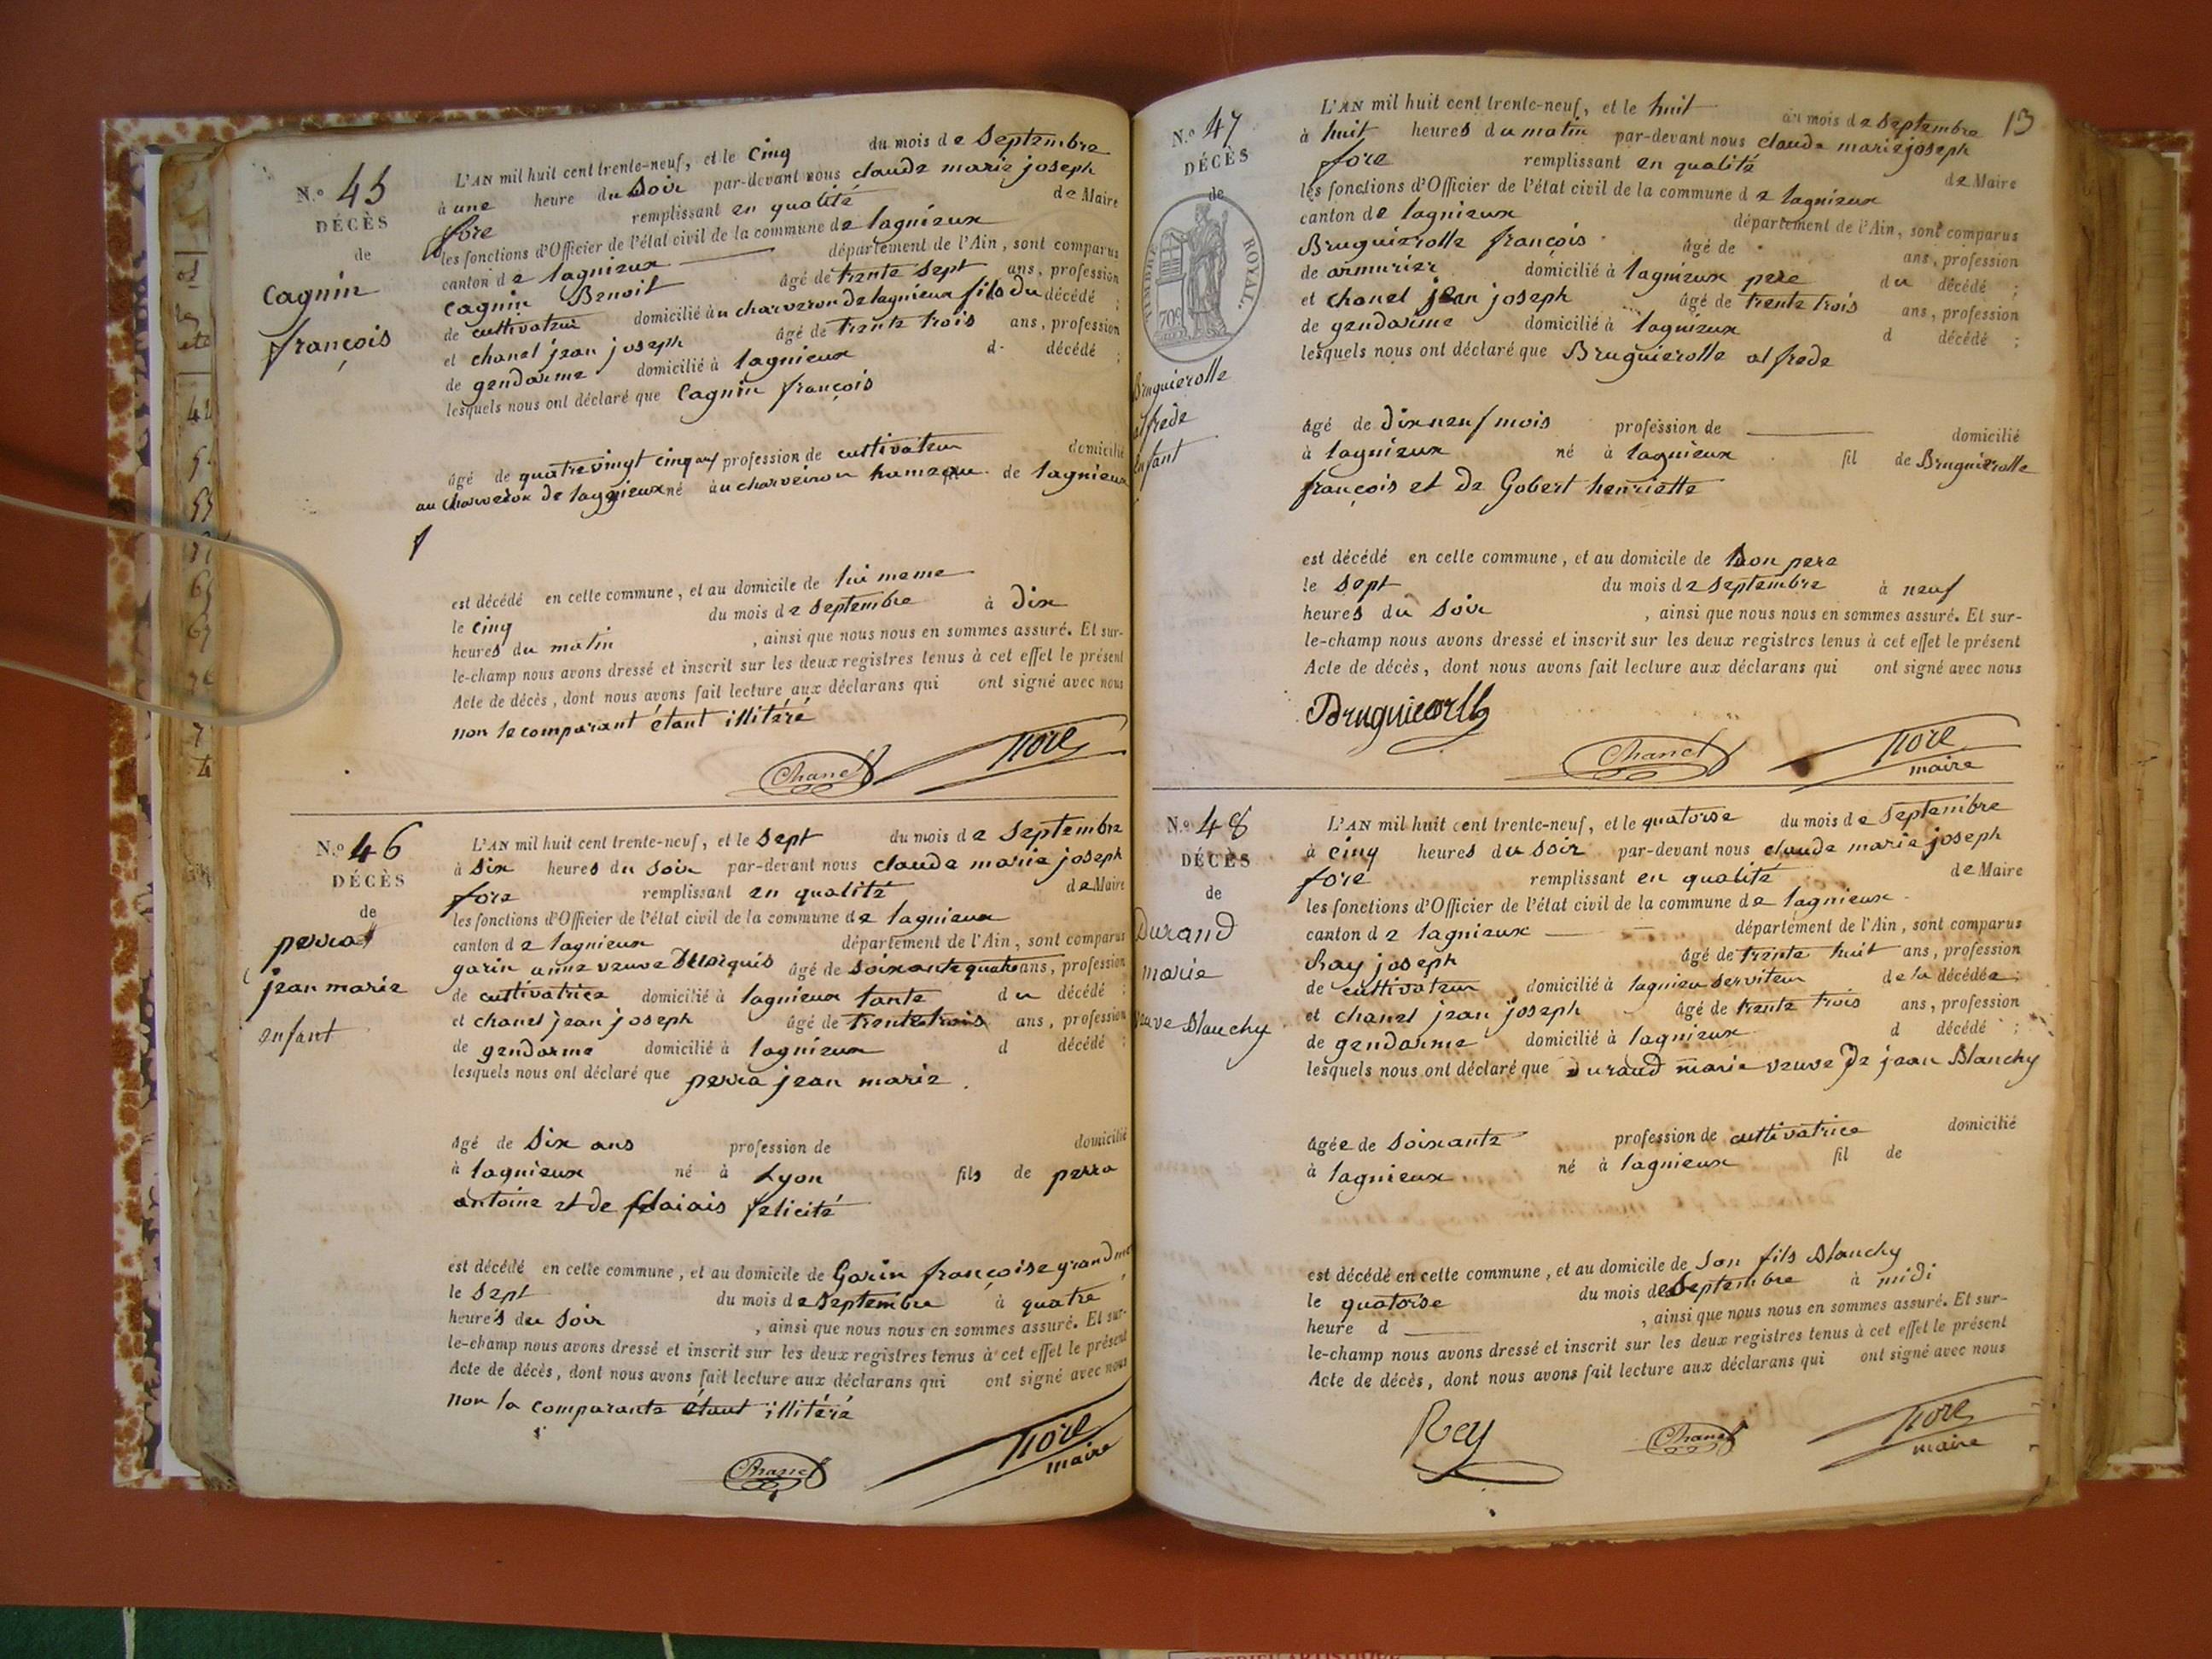 N.º 45
DÉCÈS
de
Cagnin
françois
L'AN mil huit cent trente-neuf, et le cinq du mois de Septembre
à une heure du Soir par-devant nous claude marie joseph
fore remplissant en qualité de Maire
les fonctions d'Officier de l'état civil de la commune de lagnieux
canton de lagnieux département de l'Ain, sont comparus
Cagnin Benoit âgé de trente sept ans, profession
de cultivateur domicilié au charveron de lagnieux fils du décédé ;
et chanel jean joseph âgé de trente trois ans, profession
de gendarme domicilié à lagnieux d décédé ;
lesquels nous ont déclaré que Cagnin françois
âgé de quatrevingt cinq ans profession de cultivateur domicilié
au charveron de lagnieux né au charveiron hameau de lagnieux
est décédé en cette commune, et au domicile de lui meme
le cinq du mois de Septembre à dix
heures du matin , ainsi que nous nous en sommes assuré. Et sur-
le-champ nous avons dressé et inscrit sur les deux registres tenus à cet effet le présent
Acte de décès, dont nous avons fait lecture aux déclarans qui ont signé avec nous
non le comparant étant illitéré
Chanel fore
N.º 46
DÉCÈS
de
perra
jean marie
enfant
L'AN mil huit cent trente-neuf, et le Sept du mois de Septembre
à Six heures du Soir par-devant nous claude marie joseph
fore remplissant en qualité de Maire
les fonctions d'Officier de l'état civil de la commune de lagnieux
canton de lagnieux département de l'Ain, sont comparus
garin anne veuve âgé de Soixante quatre ans, profession
de cultivatrice domicilié à lagnieux tante du décédé ;
et chanel jean joseph âgé de trente trois ans, profession
de gendarme domicilié à lagnieux d décédé ;
lesquels nous ont déclaré que perra jean marie
âgé de Six ans profession de domicilié
à lagnieux né à Lyon fils de perra
antoine et de felicité
est décédé en cette commune, et au domicile de Garin françoise grand
le Sept du mois de Septembre à quatre
heures du Soir , ainsi que nous nous en sommes assuré. Et sur-
le-champ nous avons dressé et inscrit sur les deux registres tenus à cet effet le présent
Acte de décès, dont nous avons fait lecture aux déclarans qui ont signé avec nous
non la comparante étant illitéré
Chanel fore
maire
13
N.º 47
DÉCÈS
de
TIMBRE ROYAL
70c
Bruguierolle
alfrede
enfant
L'AN mil huit cent trente-neuf, et le huit du mois de Septembre
à huit heures du matin par-devant nous claude marie joseph
fore remplissant en qualité de Maire
les fonctions d'Officier de l'état civil de la commune de lagnieux
canton de lagnieux département de l'Ain, sont comparus
Bruguierolle françois âgé de ans, profession
de armurier domicilié à lagnieux pere du décédé ;
et chanel jean joseph âgé de trente trois ans, profession
de gendarme domicilié à lagnieux d décédé ;
lesquels nous ont déclaré que Bruguierolle alfrede
âgé de dix neuf mois profession de domicilié
à lagnieux né à lagnieux fil de Bruguierolle
françois et de Gobert henriette
est décédé en cette commune, et au domicile de Son pere
le Sept du mois de Septembre à neuf
heures du Soir , ainsi que nous nous en sommes assuré. Et sur-
le-champ nous avons dressé et inscrit sur les deux registres tenus à cet effet le présent
Acte de décès, dont nous avons fait lecture aux déclarans qui ont signé avec nous
Chanel fore
maire
N.º 48
DÉCÈS
de
Durand
marie
veuve Blanchy
L'AN mil huit cent trente-neuf, et le quatorse du mois de Septembre
à cinq heures du Soir par-devant nous claude marie joseph
fore remplissant en qualité de Maire
les fonctions d'Officier de l'état civil de la commune de lagnieux
canton de lagnieux département de l'Ain, sont comparus
Ray joseph âgé de trente huit ans, profession
de cultivateur domicilié à lagnieu serviteur de la décédée ;
et chanel jean joseph âgé de trente trois ans, profession
de gendarme domicilié à lagnieux d décédé ;
lesquels nous ont déclaré que Durand marie veuve De jean Blanchy
âgée de Soixante profession de cultivatrice domicilié
à lagnieux né à lagnieux fil de
est décédé en cette commune, et au domicile de Son fils Blanchy
le quatorse du mois de Septembre à midi
heure d , ainsi que nous nous en sommes assuré. Et sur-
le-champ nous avons dressé et inscrit sur les deux registres tenus à cet effet le présent
Acte de décès, dont nous avons fait lecture aux déclarans qui ont signé avec nous
Rey Chanel fore
maire